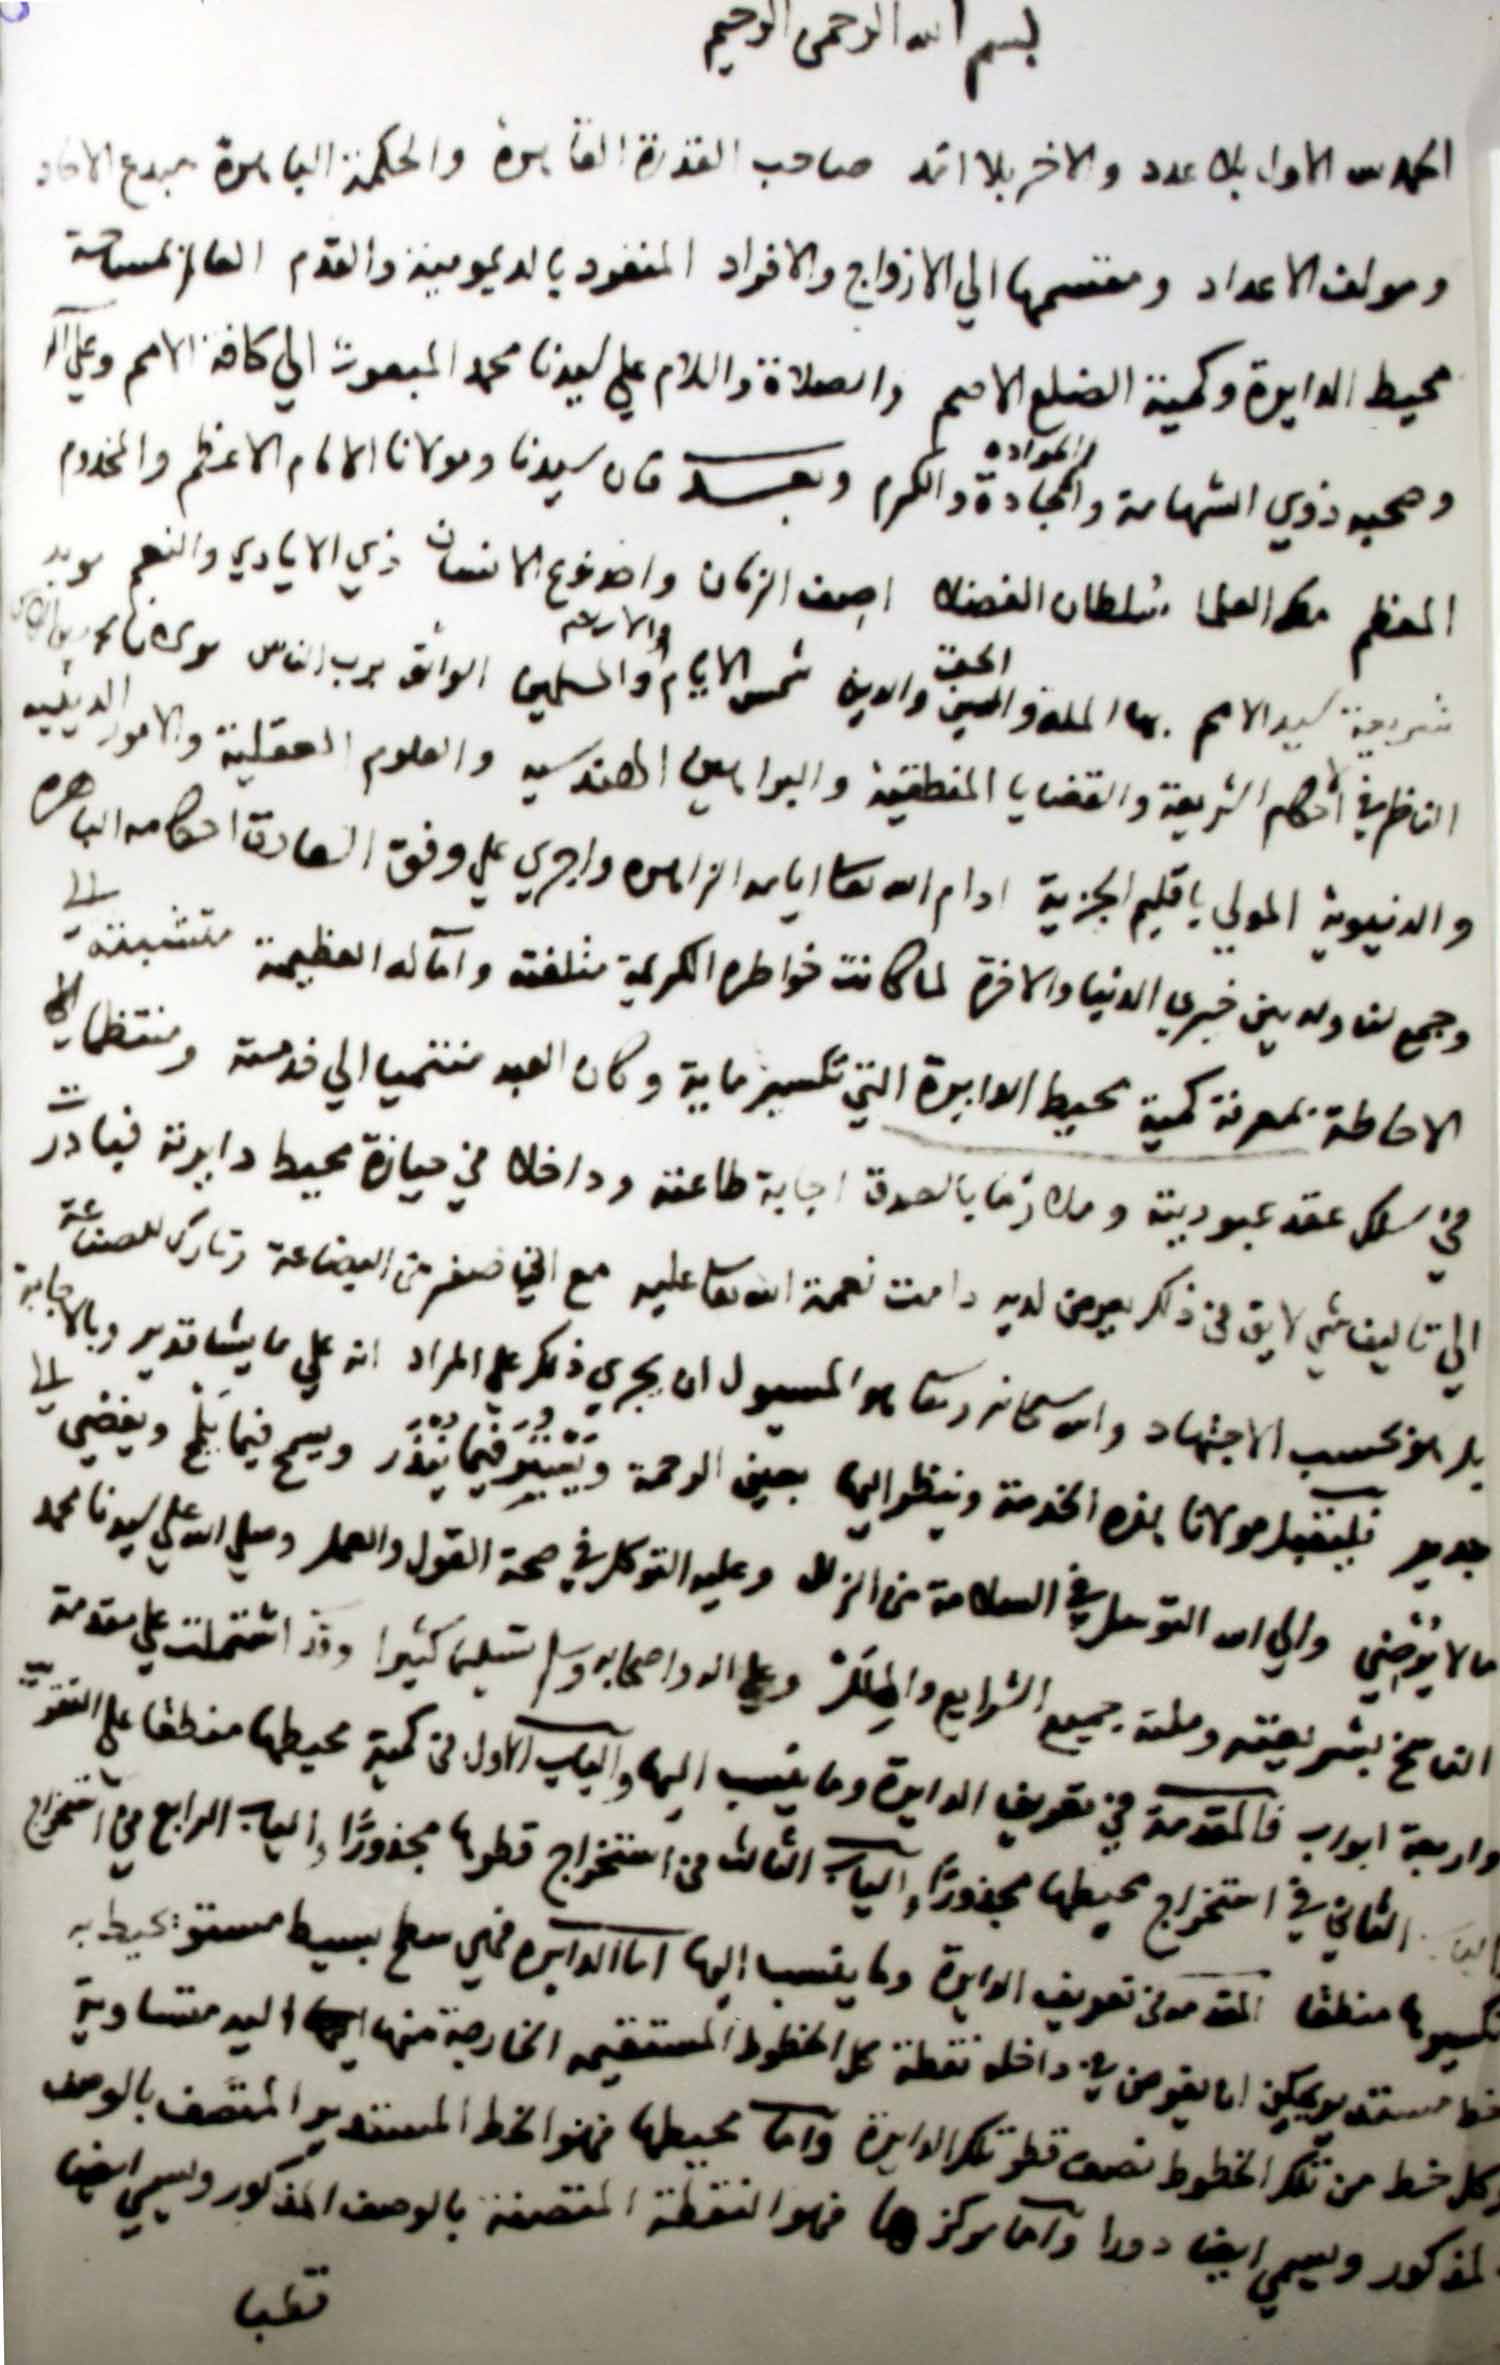 بسم الله الرحمن الرحيم
الحمد لله الاول بلا عدد والاخر بلا امد صاحب القدرة القاهرة والحكمة الباهرة مبدع الاحاد
ومولف الاعداد ومقسمها الي الازواج والافراد المنفرد بالديمومية والقدم العالم بمساحة
محيط الدايرة وكمية الضلع الاصم والصلاة والسلام علي سيدنا محمد المبعوث الي كافة الامم وعلي آله
وصحبه ذوي الشهامة والمجادة والكرم وبعد فان سيدنا ومولانا الامام الاعظم والمخدوم
المعظم ملك العلما سلطان الفضلا اصف الزمان واحد نوع الانسان ذي الايادي والنعم مويد
شريعة سيد الامم بها الملة والدين شمس الاسلام والمسلمين الواثق برب الناس مولانا
الناظر في احكام الشريعة والقضايا المنطقية والبراهين الهندسيه والعلوم العقلية والامور الدينيه
والدنيوية المولي باقليم الجزية ادام الله تعا ايامه الزاهره واجري علي وفق السعادة احكامه الباهره
وجمع لنا وله بين خيري الدنيا والاخرة لما كانت خواطره الكريمة متلفتة وآماله العظيمة متشبثة الي
الاحاطة بمعرفة كمية محيط الدايرة التي تكسيرها ماية وكان العبد منتميا الي خدمته ومنتظما
في سلك عقد عبوديته وملازما بالصدق اجابة طاعته وداخلا في حيازة محيط دايرته فبادرت
الي تاليف شي لايق في ذلك يعرض لديه دامت نعمة الله تعا عليه مع اني صفر من البضاعة وتارك للصناعة
بل هو بحسب الاجتهاد والله سبحانه وتعا هو المسيول ان يجري ذلك علي المراد انه علي ما يشا قدير وبالاجابة
جدير فليتقبل مولانا هذه الخدمة وينظر اليها بعين الرحمة ويسمح فيما ويفضي الي
مالا يرضي والي الله التوسل في السلامة من الزلل وعليه التوكل في صحة القول والعمل وصلي الله علي سيدنا محمد
الناسخ بشريعته وملته جميع الشرايع والملل وعلي اله واصحابه وسلم تسليما كثيرا وقد اشتملت علي مقدمة
واربعة ابواب فالمقدمة في تعريف الدايرة وما ينسب اليها والباب الاول في كمية محيطها منطقا علي التقريب
والباب الثاني في استخراج محيطها مجذورا والباب الثالث في استخراج قطرها مجذورا والباب الرابع في استخراج
تكسيرها منطقا المقدمه في تعريف الدايرة وما ينسب اليها اما الدايره فهي سطح بسيط مستو يحيط به
خط مستدير يمكن ان يفرض في داخله نقطة كل الخطوط المستقيمه الخارجة منها اليه متساوية
وكل خط من تلك الخطوط نصف قطر تلك الدايرة واما محيطها فهو الخط المستدير المتصف بالوصف
المذكور ويسمي ايضا دورا واما مركزها فهو النقطة المتصفة بالوصف المذكور ويسمي ايضا
قطبا